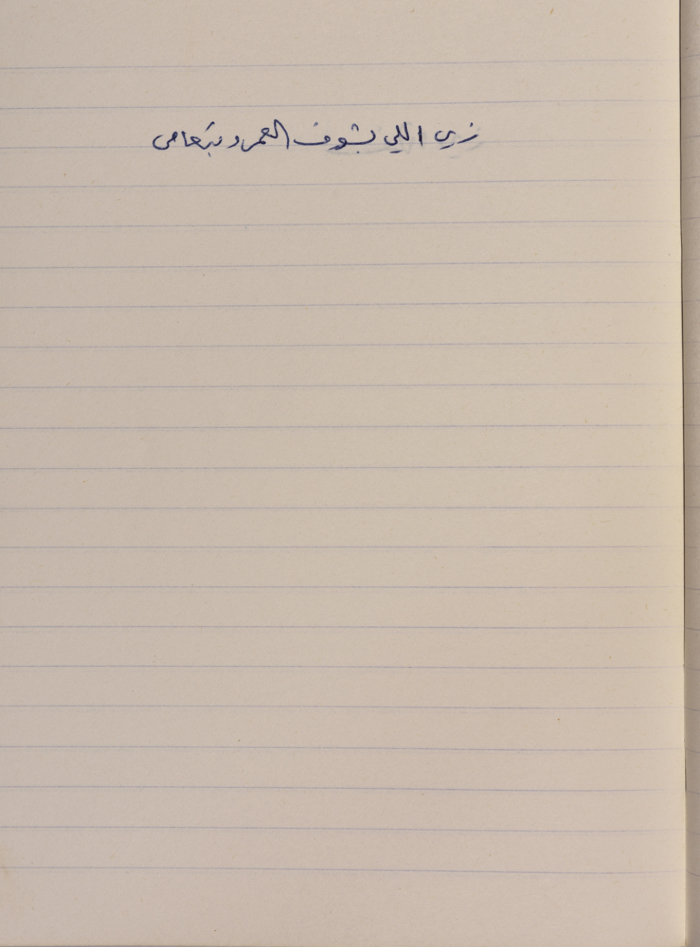 زي اللي بشوف العمر وبتعامى